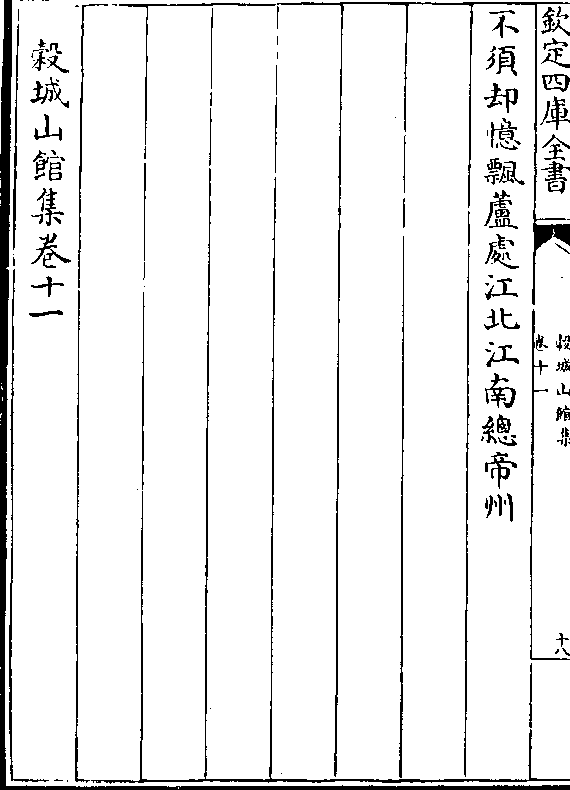 欽定四庫全書
穀城山館集
卷十一
十八
不須却憶飄蘆處江北江南總帝州
穀城山館集卷十一